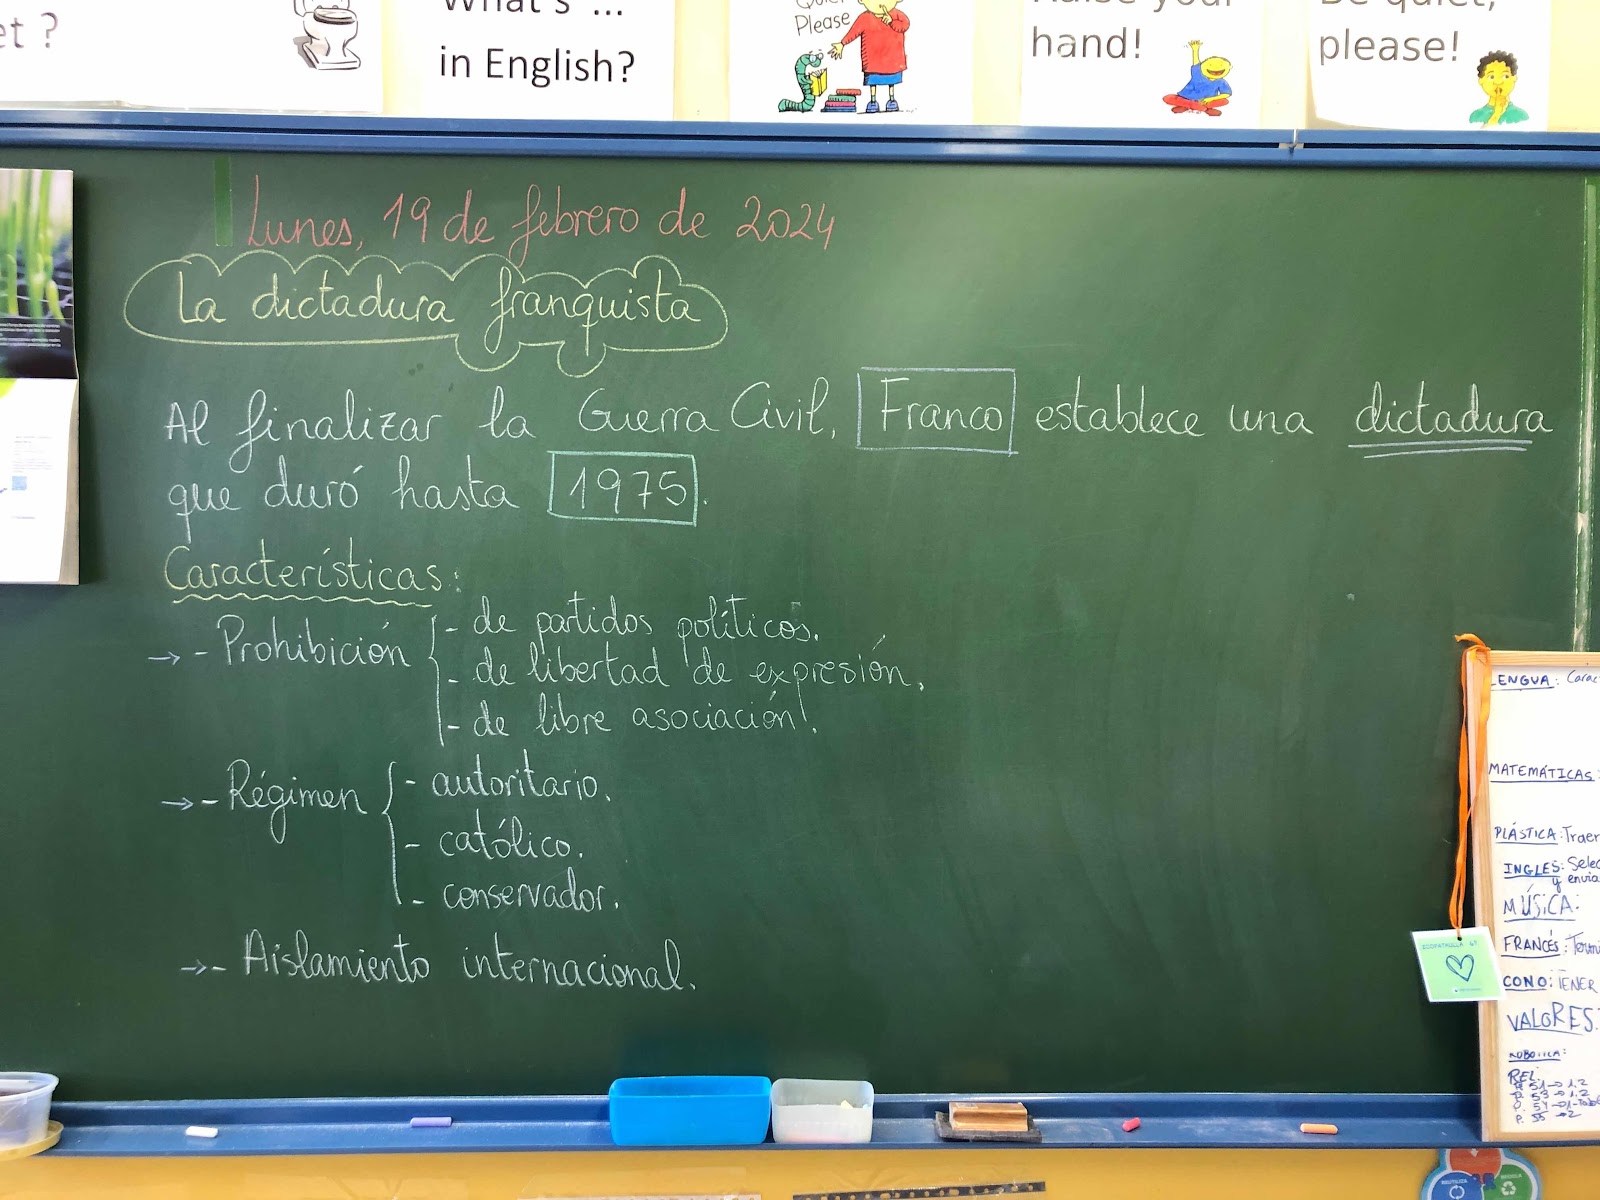 et ?
What's ...
in English?
Quiet
Please
Raise your
hand!
Be quiet,
please!
Lunes, 19 de febrero de 2024
La dictadura franquista
Al finalizar la Guerra Civil, Franco establece una dictadura
que duró hasta 1975.
Características:
→ - Prohibición
- de partidos políticos.
- de libertad de expresión.
- de libre asociación.
→ - Régimen
- autoritario.
- católico.
- conservador.
→ - Aislamiento internacional.
LENGUA: Carac
MATEMÁTICAS:
PLÁSTICA: Traer
INGLES: Selec
y envia
MÚSICA:
FRANCÉS: Termi
CONO: TENER
VALORES:
ROBOTICA:
REL:
P. 51 → 1.2
P. 53 → 1.2
P. 55 → 2